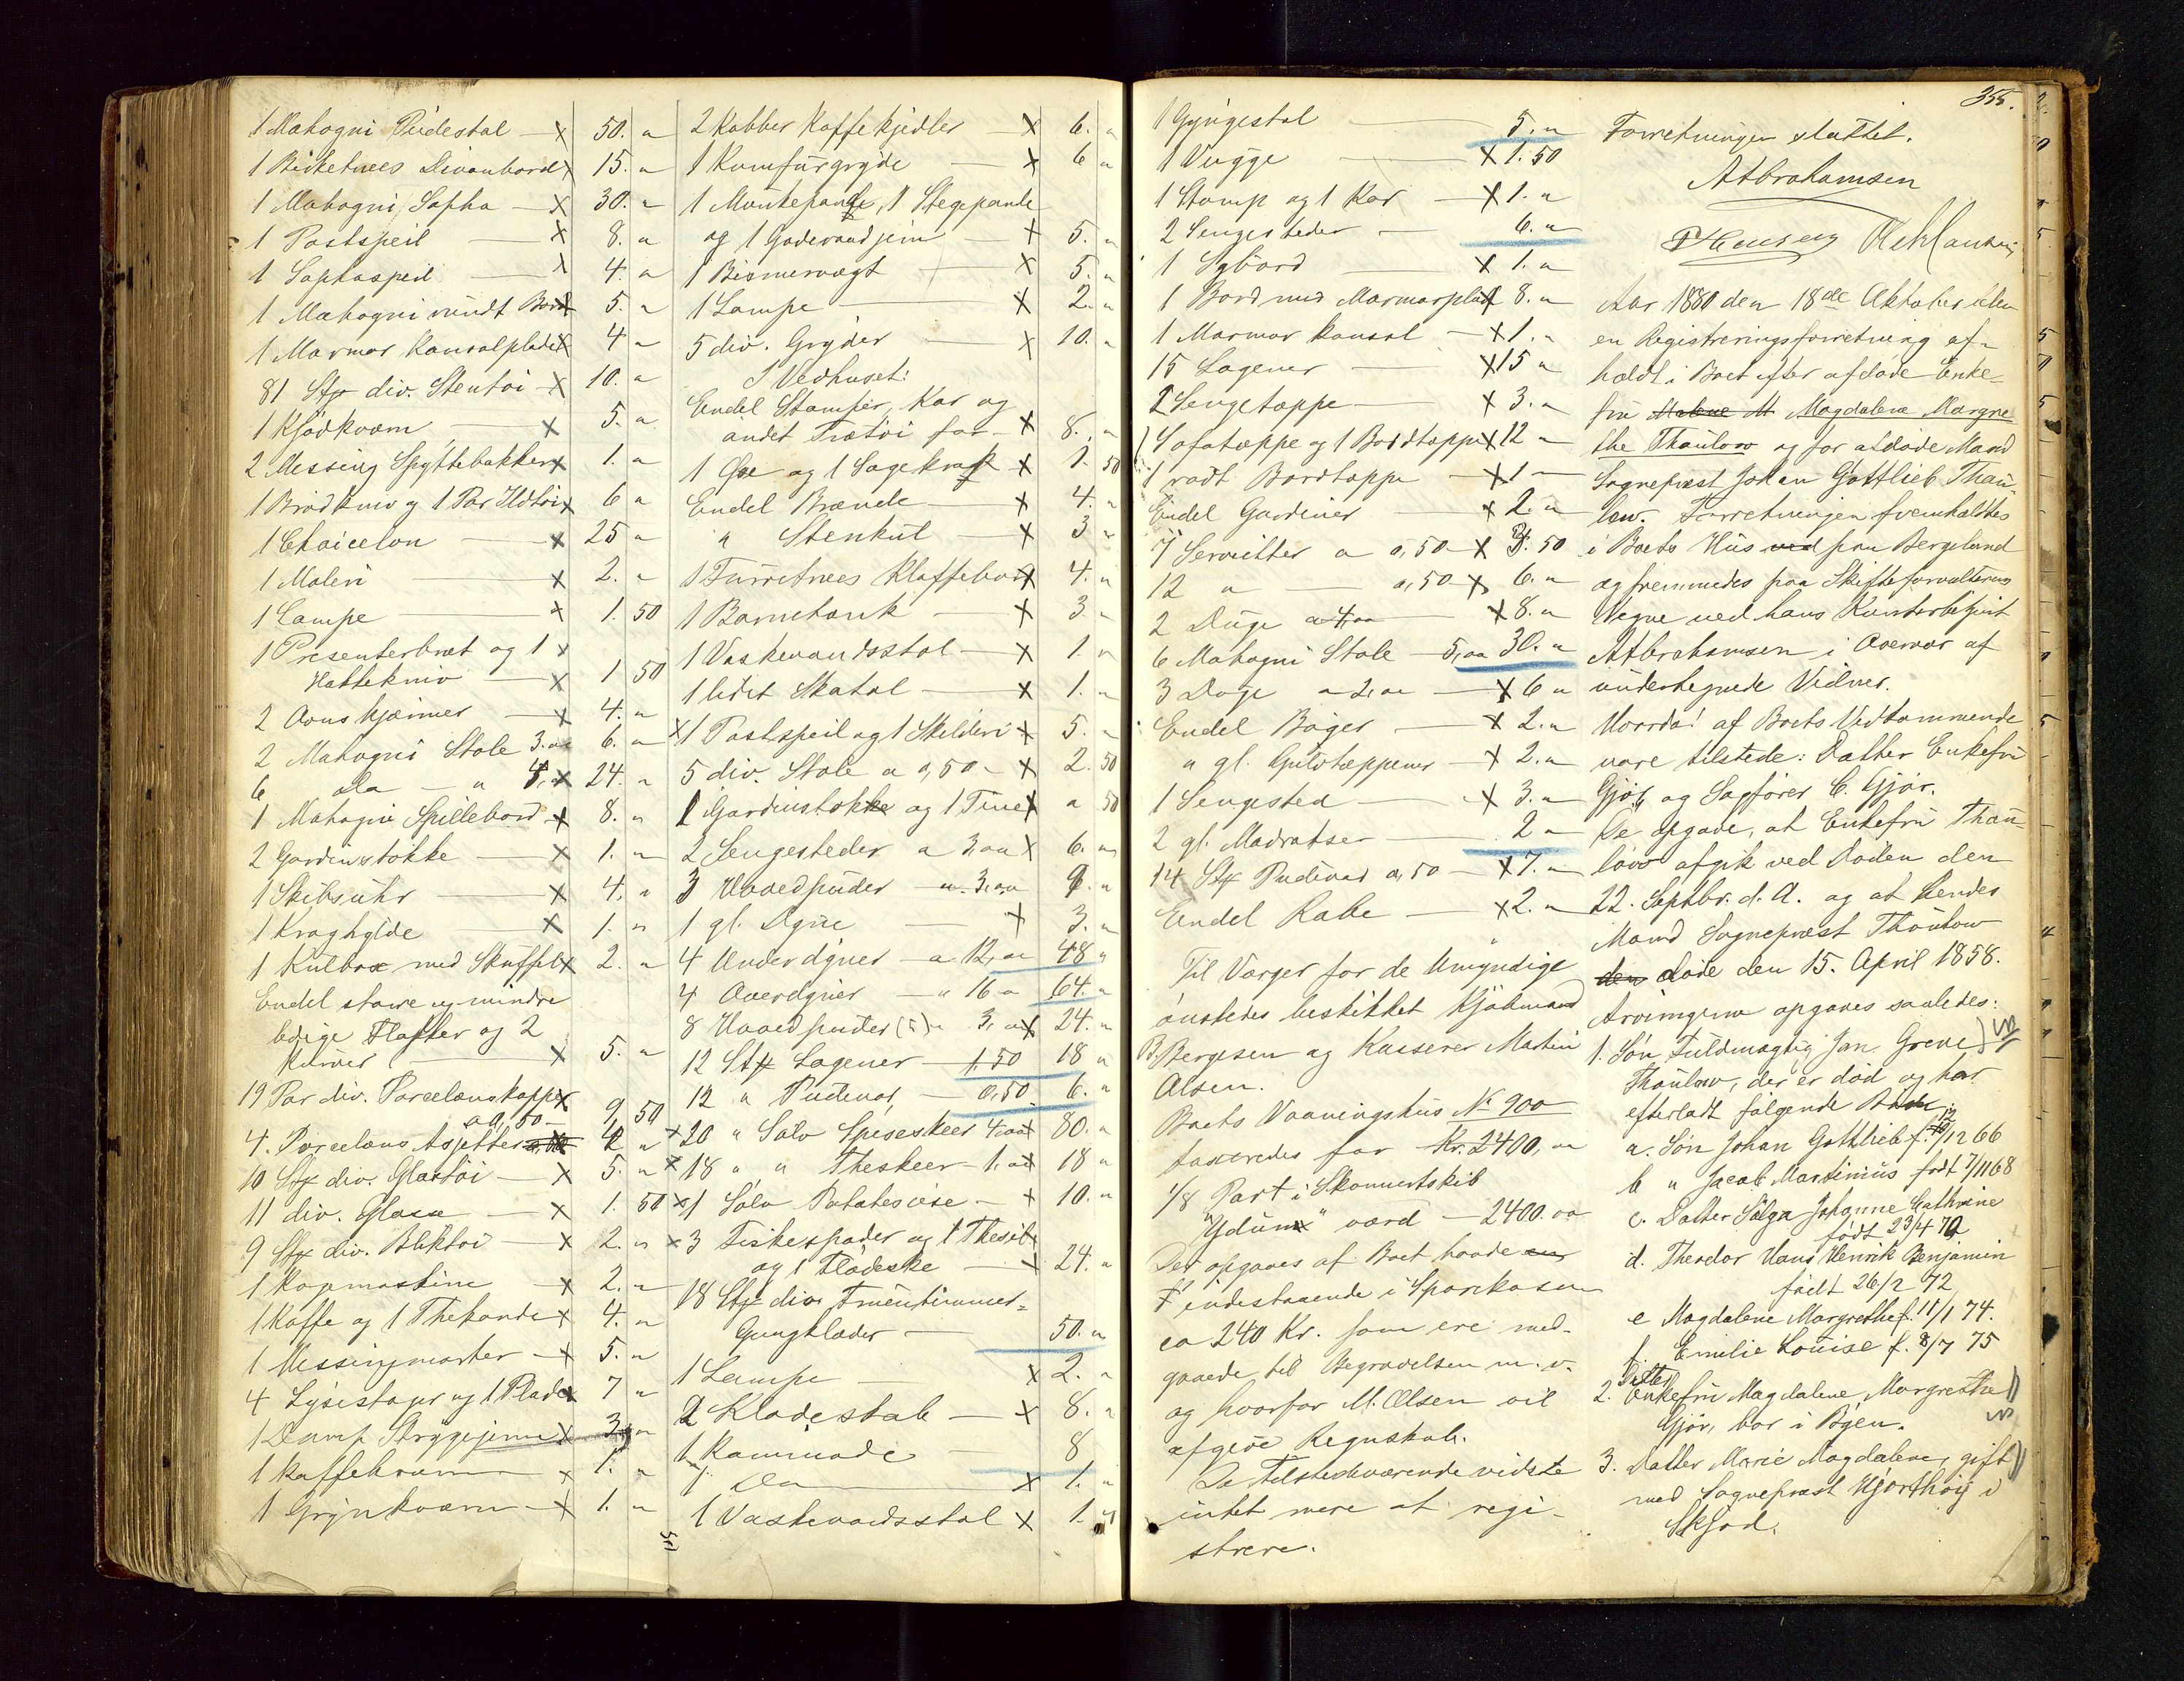 1 Mahogni Pidestal — x 50. "
1 Birketræes Divanbord x 15. "
1 Mahogni Sopha — x 30. "
1 Postspeil — x 8. "
1 Sophaspeil — x 4. "
1 Mahogni rundt Bord x 5. "
1 Marmor Konsolplade x 4 "
81 Stk div. Stentøi — x 10. "
1 Kjødkværn — x 5. "
2 Messing Spyttebakker x 1. "
1 Brødkniv og 1 Par Ildtøi x 6 "
1 Chaicelon — x 25 "
1 Maleri — x 2. "
1 Lampe — x 1. 50
1 Presenterbræt og 1 x
Hakkekniv — x 1 50
2 Ovnskjærmer — x 4. "
2 Mahogni Stole 3.00 6. "
6 do — " 4, x 24. "
1 Mahogni Spillebord x 8. "
2 Gardinstokke — x 1. "
1 Skibsuhr — x 4. "
1 Kraghylde — x 1. "
1 Kulboxe med Skuffel x 2. "
Endel større og mindre
ledige Flasker og 2
Kurver — x 5. "
19 Par div. Porcelænskopper x
a 0,50 — 9 50
4. Porcelæns Asjetter 2 "
10 Stk div. Glastøi — x 5. "
11 div. Glase — x 1. 50
9 Stk div. Bliktøi — x 2. "
1 Kopmaskine — x 2. "
1 Kaffe og 1 Thekande x 4. "
1 Messingmorter — x 5. "
4 Lysestager og 1 Plade x 7 "
1 Damp Strygejern x 3. "
1 Kaffebrænner x 1. "
1 Grynkværn — x 1. "
2 Kobber Kaffekjedler x 6. "
1 Komfurgryde — x 6 "
1 Munkepande, 1 Stegepande
og 1 Goderaadjern — x 5. "
1 Bismervægt — x 5. "
1 Lampe — x 2. "
5 div. Gryder — x 10. "
I Vedhuset:
Endel Stamper, Kar og
andet Trætøi for — x 8. "
1 Øxe og 1 Sagekrak x 1. 50
Endel Brænde — x 4. "
" Stenkul — x 3 "
1 Furretræes Klaffebord x 4. "
1 Barnebænk — x 3. "
1 Vaskevandsstol — x 1. "
1 lidet Skatol — x 1. "
x 1 Postspeil og 1 Skilderi x 5. "
5 div. Stole a 0,50 — x 2. 50
1 Gardinstokke og 1 Tine x " 50
2 Sengesteder a 3,00 x 6. "
3 Hovedpuder — a 3,00 9. "
1 gl. Dyne — x 3. "
4 Underdyner — a 12,00 48 "
4 Overdyner — " 16 " 64. "
8 Hovedputer (5) a 3, x 24. "
12 Stk Lagener — 1,50 18 "
12 " Pudevar, — 0,50 6. "
x 20 " Sølv Spiseskeer 4,00 x 80. "
x 18 " " Theskeer — 1,00 x 18 "
x 1 Sølv Potatesøse — x 10. "
x 3 Fiskespader og 1 Thesil
og 1 Flødeske — x 24. "
18 Stk div Fruentimmer-
Gangklæder — 50. "
1 Lampe — x 2. "
2 Klædeskab — x 8. "
1 Kommode — 8
1 Do — x 1. "
1 Vaskevandsstol x 1. "
1 Gyngestol — 5. "
1 Vugge — x 1. 50
1 Stamp og 1 Kar — x 1. "
2 Sengesteder — 6. "
1 Sybord — x 1. "
1 Bord med Marmorplade x 8. "
1 Marmor konsol — x 1. "
15 Lagener — x 15 "
2 Sengetæppe — x 3. "
1 Sofatæppe og 1 Bordtæppe x 12 "
1 rødt Bordtæppe — x 1 "
Endel Gardiner — x 2. "
7 Servietter a 0,50 — x 3. 50
12 " — 0,50 x 6. "
2 Duge a 4,00 x 8. "
6 Mahogni Stole — 5,00 30. "
3 Duge a 2,00 — x 6 "
Endel Bøger — x 2. "
" gl. Gulvtæpper — x 2. "
1 Sengested — x 3. "
2 gl. Madratser — 2 "
14 Stk Pudevar 0,50 — x 7. "
Endel Kobe — x 2. "
Til Værger for de Umyndige
ønskedes beskikket Kjøbmand
B. Bergesen og Kasserer Martin
Olsen.
Boets Vaaningshus No 900
taxeredes for Kr. 2400, "
1/8 Part i Skonnertskib
"Ydun" værd — 2400.00
Det opgaves at Boet havde
indestaaende i Sparekassen
ca 240 Kr. som ere med-
gaaede til Begravelsen m. v.
og hvorfor M. Olsen vil
afgive Regnskab.
De Tilstedeværende vidste
intet mere at regi-
strere.
355.
Forretningen sluttet.
A Abrahamsen
Aar 1880 den 18de Oktober blev
en Registreringsforretning af-
holdt i Boet efter afdøde Enke-
fru Malene M Magdalena Margre
the Thaulow og før afdøde Mand
Sogneprest Johan Gottlieb Thau-
low. Forretningen fremholdtes
i Boets Hus ved paa Bergeland
og fremmedes paa Skifteforvalterens
Vegne ved hans Kontorbetjent
A Abrahamsen i Overvær af
undertegnede Vidner.
Hosstod af Boets Vedkommende
vare tilstede: Datter Enkefru
Gjør, og Sagfører C. Gjør.
De opgave, at Enkefru Thau-
low afgik ved Døden den
22. Septbr. d. A. og at hendes
Mand Sogneprest Thaulow
den døde den 15. April 1858.
Arvingerne opgaves saaledes:
1. Søn Fuldmægtig Jan Greve
Thaulow, der er død og har
efterladt følgende Børn:
a. Søn Johan Gottlieb f. /12 66
b " Jacob Martinius født 7/11 68
c. Datter Sølga Johanne Cathrine
født 23/4 70
d. Theodor Hans Henrik Benjamin
født 26/2 72
e Magdalene Margrethe f. 11/1 74.
f. Emilie Louise f. 8/7 75
2. Datter Enkefru Magdalene Margrethe
Gjør, bor i Bøgen.
3. Datter Marie Magdalene, gift
med Sogneprest Hjorthøy i
Skjod.